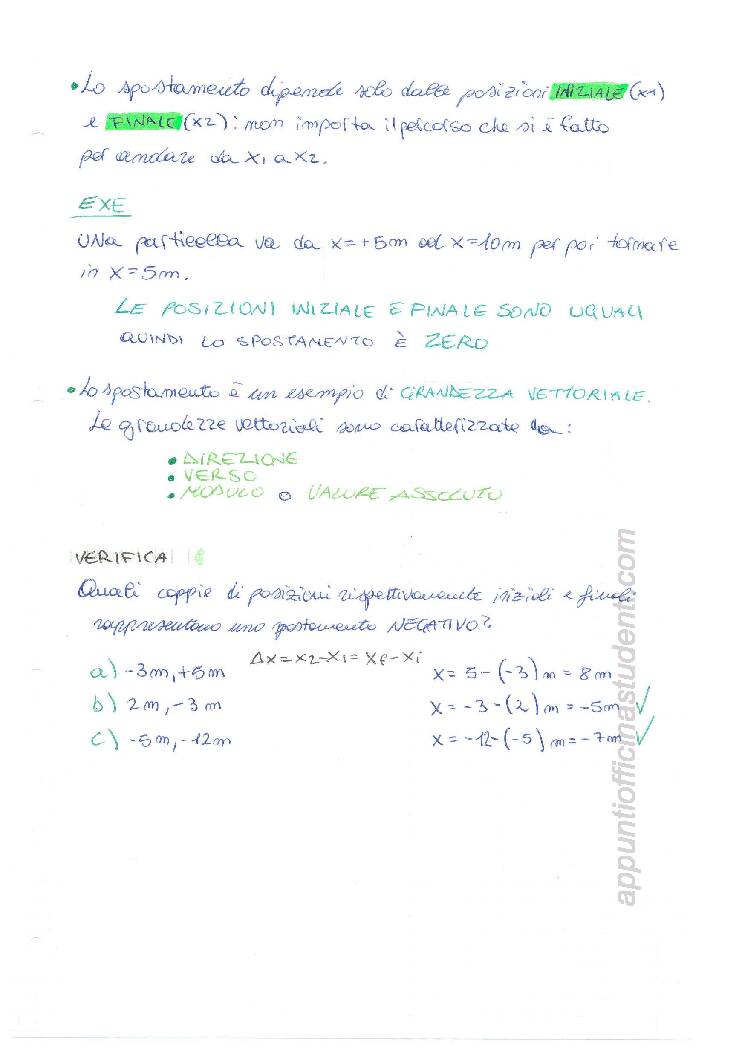 • Lo spostamento dipende solo dalle posizioni INIZIALE (x1)
e FINALE (x2): non importa il percorso che si è fatto
per andare da x1 a x2.
EXE
UNA particella va da x=+5m ad x=10m per poi tornare
in x=5m.
LE POSIZIONI INIZIALE E FINALE SONO UGUALI
QUINDI LO SPOSTAMENTO È ZERO
• Lo spostamento è un esempio di GRANDEZZA VETTORIALE.
Le grandezze vettoriali sono caratterizzate da:
• DIREZIONE
• VERSO
• MODULO o VALORE ASSOLUTO
VERIFICA
Quali coppie di posizioni rispettivamente iniziali e finali
rappresentano uno spostamento NEGATIVO?
Δx=x2-x1=xf-xi
a) -3m, +5m x= 5-(-3)m = 8m
b) 2m, -3m x= -3-(2)m = -5m ✓
c) -5m, -12m x= -12-(-5)m = -7m ✓
appuntiofficinastudenti.com